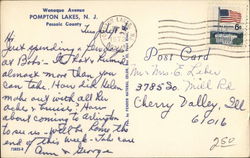 Wanaque Avenue
POMPTON LAKES, N. J.
Passaic County
Hi
Just spending a few days
at Bob's - the heat & humid
almost more than you
can take. How did Helen
make out with all her
aches & How
about coming to Arlington
to see us - will be home the
end of this week - Take care
Ann & George
Post Card
Mr & Mrs E. Laker
37853 Mill Rd
Cherry Valley, Ill
61016
6c
250